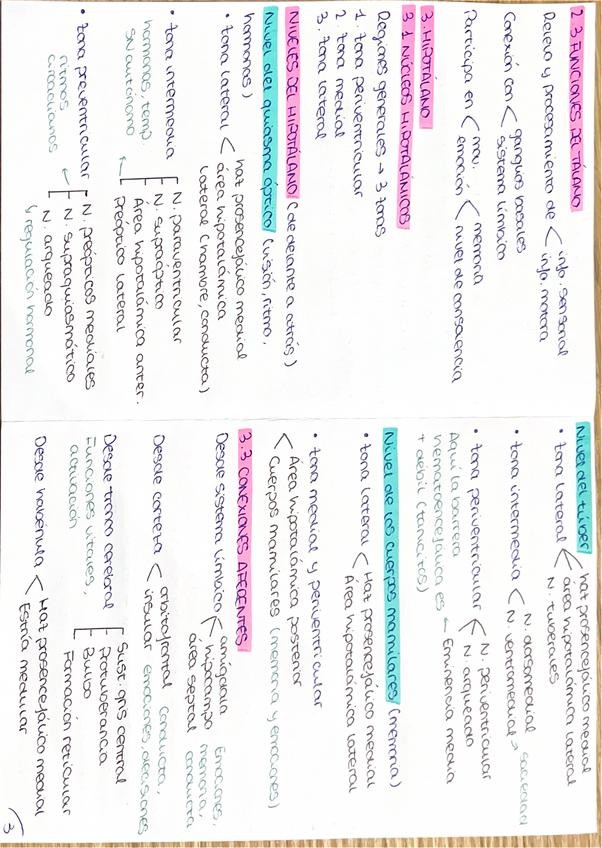 2.3 FUNCIONES DEL TÁLAMO
Relevo y procesamiento de < info. sensorial
info. motora
Conexión con < ganglios basales
sistema límbico
Participa en < mov. < memoria
emoción nivel de consciencia
3. HIPOTÁLAMO
3.1 NÚCLEOS HIPOTALÁMICOS
Regiones generales → 3 zonas
1. zona periventricular
2. zona medial
3. zona lateral
NIVELES DEL HIPOTÁLAMO (de delante a atrás)
Nivel del quiasma óptico (visión, ritmo,
hormonas)
• zona lateral < haz prosencefálico medial
área hipotalámica
lateral (hambre, conducta)
• zona intermedia [ N. paraventricular
hormonas, temp. N. supraóptico
SN autónomo Área hipotalámica anter.
Preóptico lateral
• zona preventricular [ N. preópticos mediales
ritmos N. supraquiasmático
circadianos N. arqueado
↳ regulación hormonal
Nivel del túber
• zona lateral < haz prosencefálico medial
área hipotalámica lateral
N. tuberales
• zona intermedia < N. dorsomedial
N. ventromedial → saciedad
• zona periventricular < N. periventricular
N. arqueado
Aquí la barrera ← Eminencia media
hematoencefálica es
+ débil (tanicitos)
Nivel de los cuerpos mamilares (memoria)
• zona lateral < Haz prosencefálico medial
Área hipotalámica lateral
• zona medial y periventricular
< Área hipotalámica posterior
Cuerpos mamilares (memoria y emociones)
3.3 CONEXIONES AFERENTES
Desde sistema límbico < amígdala Emociones,
hipocampo memoria,
área septal conducta
Desde corteza < orbitofrontal conducta,
insular emociones, decisiones
Desde tronco cerebral [ Sust. gris central
Funciones vitales, Protuberancia
activación Bulbo
Formación reticular
Desde habénula < Haz prosencefálico medial
Estría medular
3